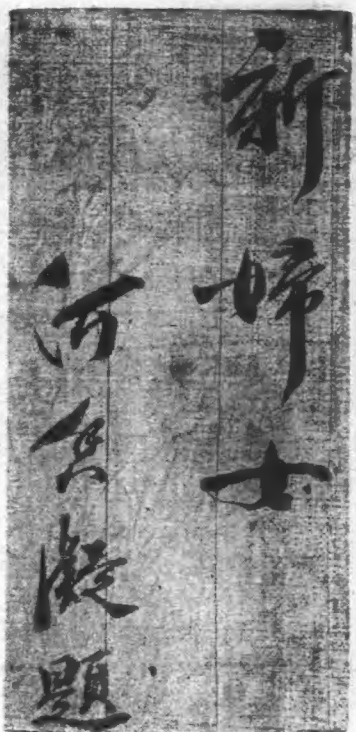 新婦女
何香凝題